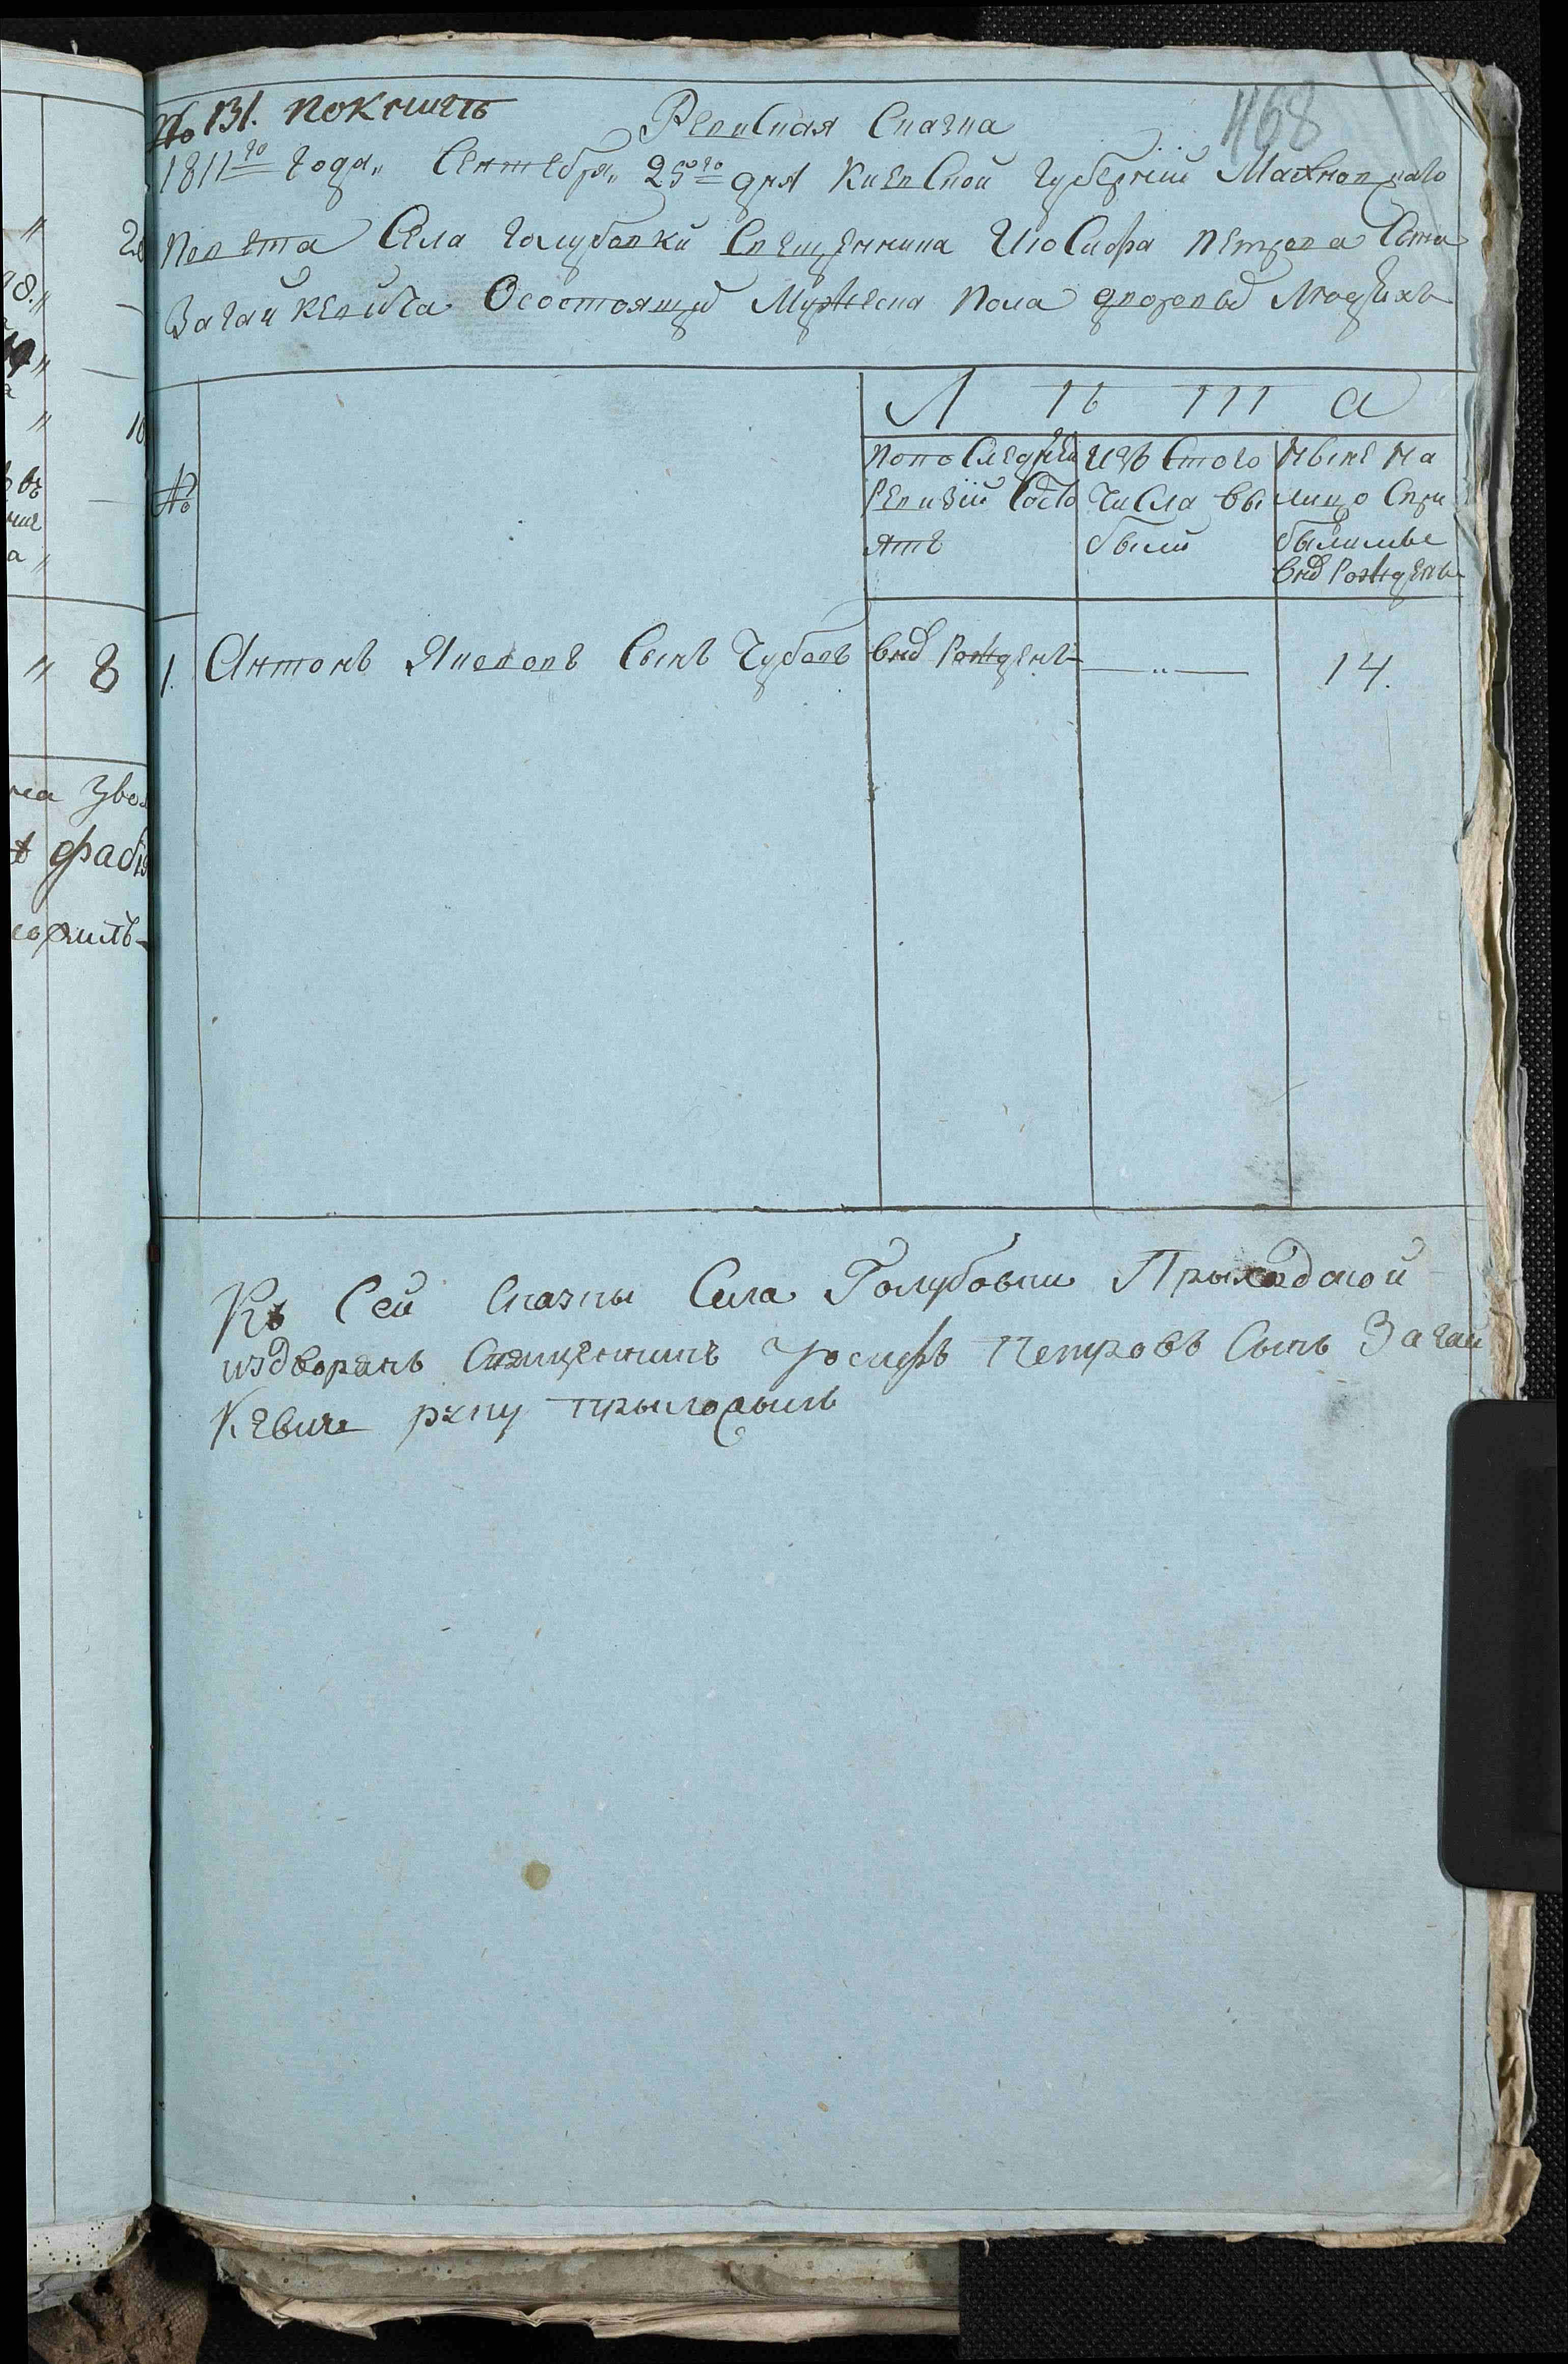 468
№ 131. по книгѣ
Ревиская Сказка
1811го года„ Сентебря„ 25го дня Киевской Губернии Махновскаго
Повета Села Голубовки Свещенника Иосифа Петрова Сына
Загайкевича Осостоящих Мужеска пола дворовых Людяхъ
№
Л ѣ т а
попоследней
Ревизии Состо
ятъ
изъ Стого
Числа вы
были
Ныне на
лицо Спри
былыме
внов Рожденъ
1. Антонъ Якововъ Сынъ Чубовъ внов Рожденъ — „ — 14.
Къ Сей Сказки Села Голубовки Прыходской
издворянъ Священникъ Иосифъ Петровъ Сынъ Загай
Кевичъ руку прыложылъ
„ 8